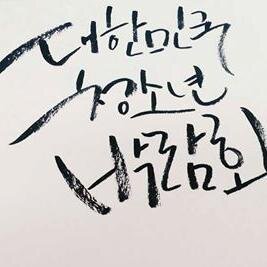 대한민국
청소년
박람회